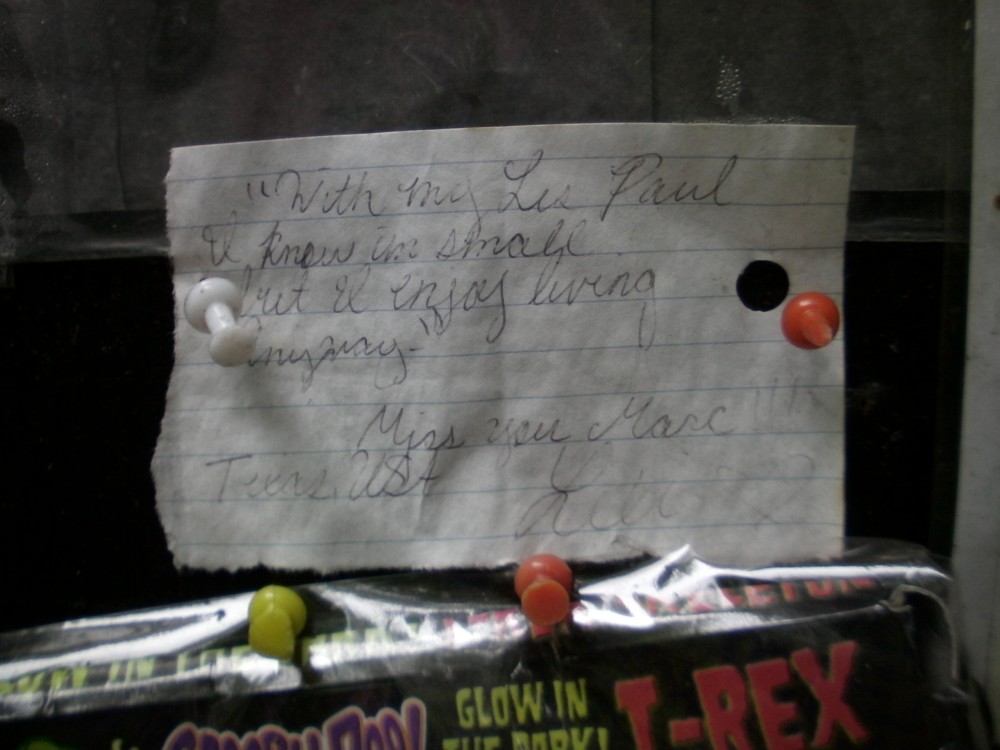 "With my Les Paul
I know im small
but I enjoy living
anyway."
Miss you Marc !!!!
Texas, USA
GLOW IN
THE DARK!
T-REX